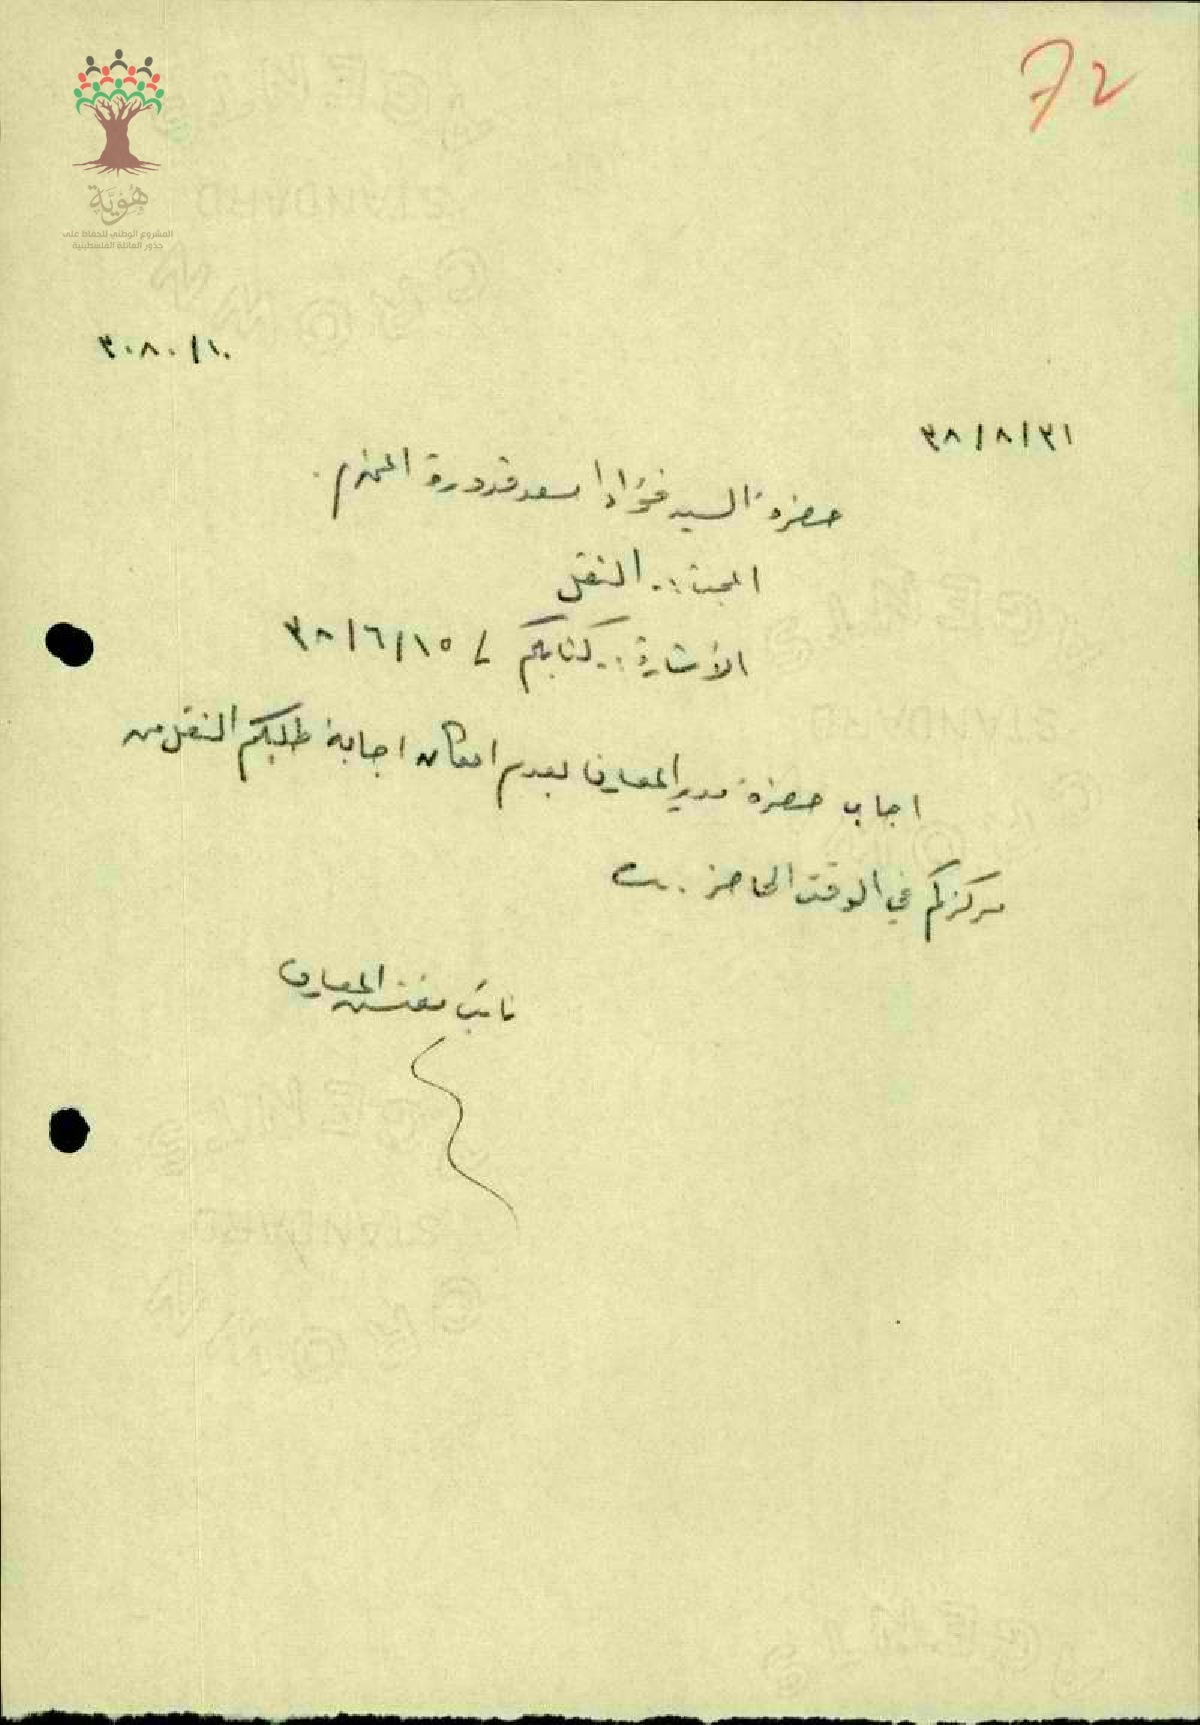 72
هُوِيَّة
المشروع الوطني للحفاظ على
جذور العائلة الفلسطينية
٣٠٨٠/١٠
٣٨/٨/٣١
حضرة السيد فؤاد اسعد قدورة المحترم.
المبحث :. النقل
الأشارة :. كتابكم ٣٨/٦/١٥
اجاب حضرة مدير المعارف بعدم امكان اجابة طلبكم النقل من
مركزكم في الوقت الحاضر .
نائب مفتش المعارف
STANDARD
STANDARD
STANDARD